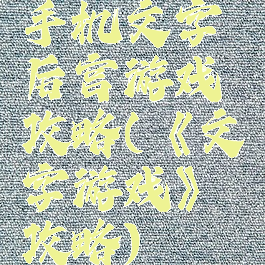 手机文字
后宫游戏
攻略(《文
字游戏》
攻略)